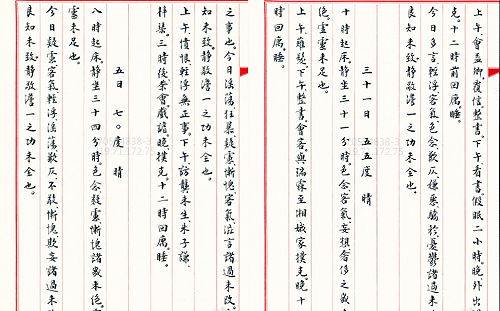 上午會益卿。覆信。整。下午看書。假眠二小時。晚外出
克。十二時前回寓。睡。
今日多言、輕浮、客氣、色念、欺仄、嫌棄、驕矜、憂鬱諸過未
良知未致。靜敬澹一之功未全也。
三十一日 五五度 晴
十時起床。靜坐三十一分。時色念、客氣、妄想、會侈之
絕。虛靈未足也。
上午雜。下午整書。會客。與瑞霖至湘娥家撲克。晚十
時回寓。睡。
之事也。今日淫蕩、狂暴、慚愧、客氣、流言諸過未改。
知未致。靜敬澹一之功未全也。
上午憤恨、輕浮、無正事。下午訪龔未生、朱子謙
梓琴。三時後茶會。戲謔。晚撲克。十二時回寓。睡。
五日 七〇度 晴
八時起床。靜坐三十四分。時色念、慚愧諸未絕。
靈未足也。
今日客氣、輕浮、淫蕩、欺仄、不敬、慚愧、欺妄諸過未
良知未致。靜敬澹一之功未全也。